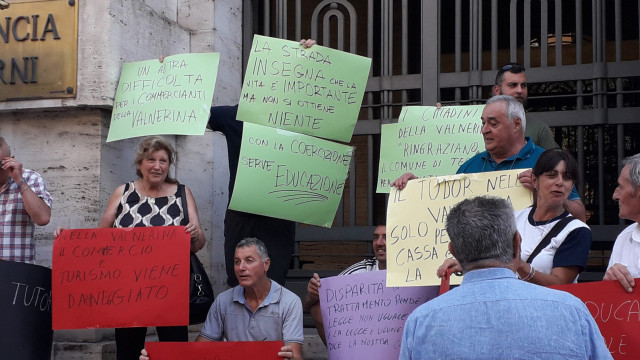 NCIA
RNI
UN ALTRA
DIFFICOLTÀ
PER I COMMERCIANTI
DELLA
VALNERINA
LA STRADA
INSEGNA CHE LA
VITA È IMPORTANTE
MA NON SI OTTIENE
NIENTE
CON LA COERCIZIONE
SERVE EDUCAZIONE
I CITTADINI
DELLA VALNERINA
"RINGRAZIANO"
IL COMUNE DI
IL TUDOR NE
SOLO
CASSA
DELLA VALNERINA
IL COMMERCIO
E
TURISMO VIENE
DANNEGGIATO
TUTOR
DISPARITÀ
TRATTAMENTO RENDE
LEGGE NON UGUALE
LA LEGGE È UGUALE
LA NOSTRA